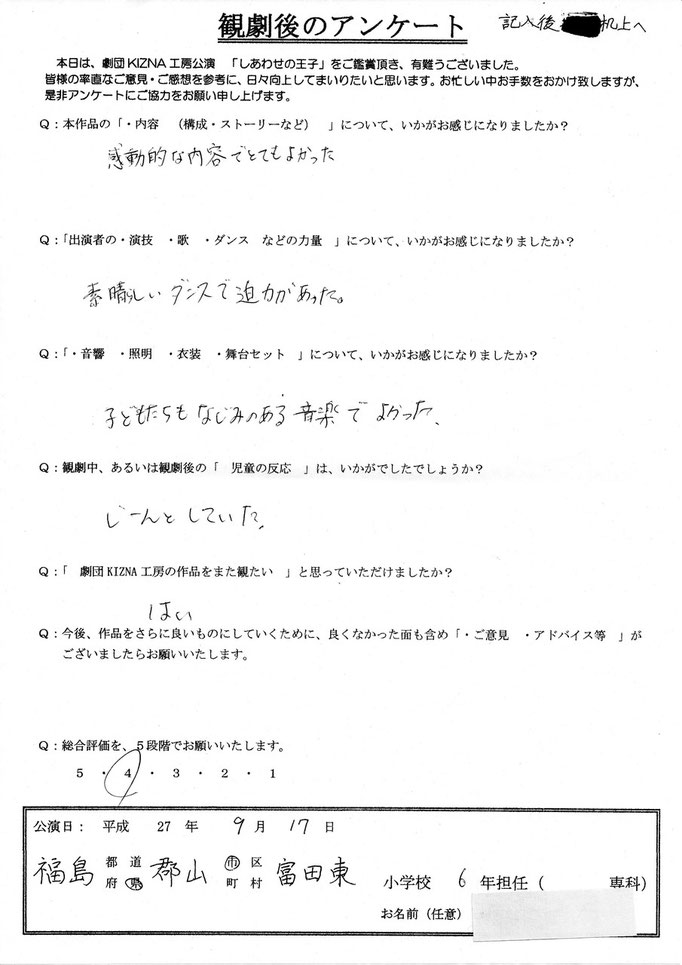 観劇後のアンケート
記入後 机上へ
本日は、劇団KIZNA工房公演 「しあわせの王子」をご鑑賞頂き、有難うございました。
皆様の率直なご意見・ご感想を参考に、日々向上してまいりたいと思います。お忙しい中お手数をおかけ致しますが、
是非アンケートにご協力をお願い申し上げます。
Q：本作品の「・内容 （構成・ストーリーなど） 」について、いかがお感じになりましたか？
感動的な内容でとてもよかった
Q：「出演者の・演技 ・歌 ・ダンス などの力量 」について、いかがお感じになりましたか？
素晴らしいダンスで迫力があった。
Q：「・音響 ・照明 ・衣装 ・舞台セット 」について、いかがお感じになりましたか？
子どもたちもなじみのある音楽でよかった、
Q：観劇中、あるいは観劇後の「 児童の反応 」は、いかがでしたでしょうか？
じーんとしていた、
Q：「 劇団KIZNA工房の作品をまた観たい 」と思っていただけましたか？
はい
Q：今後、作品をさらに良いものにしていくために、良くなかった面も含め「・ご意見 ・アドバイス等 」が
ございましたらお願いいたします。
Q：総合評価を、5段階でお願いいたします。
5 ・ 4 ・ 3 ・ 2 ・ 1
公演日： 平成 27 年 9 月 17 日
福島 都 道 府 県 郡山 市 区 町 村 富田東 小学校 6 年担任（ 専科）
お名前（任意）